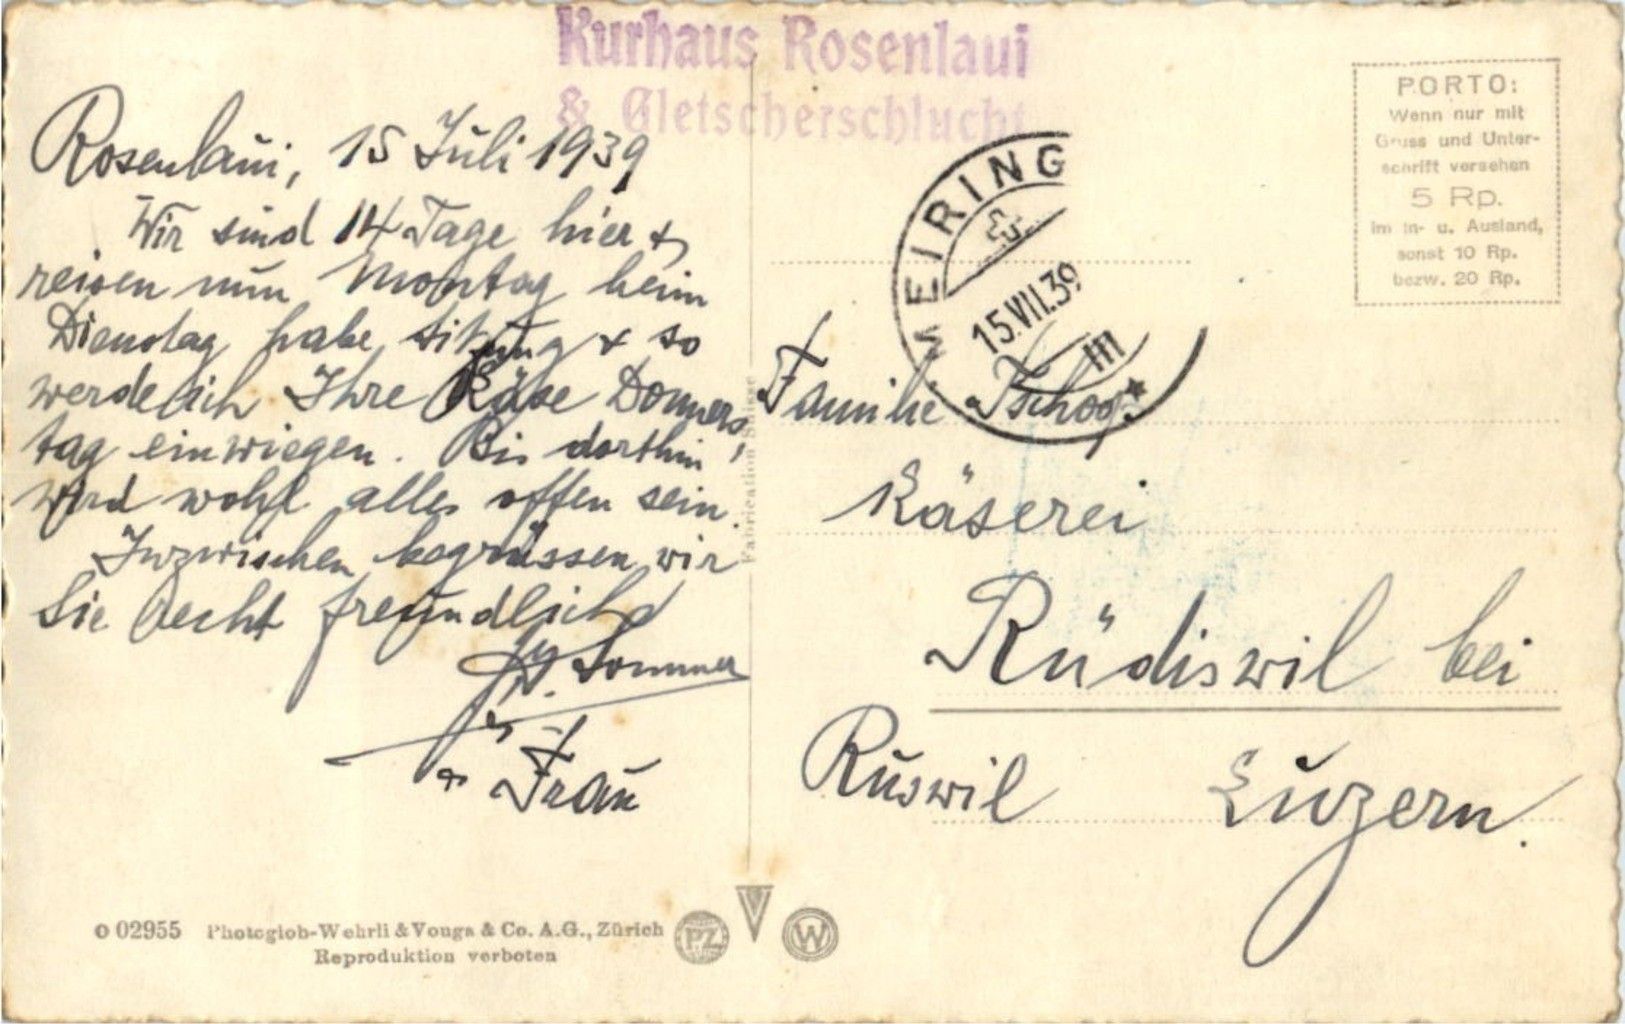 Kurhaus Rosenlaui
& Gletscherschlucht
Rosenlaui, 15 Juli 1939
Wir sind 14 Tage hier &
reisen nun Montag heim
Dienstag habe Sitzung & so
werde ich Ihre Käse Donners,
tag einwiegen. Bis dorthin
wird wohl alles offen sein.
Inzwischen begrüssen wir
Sie recht freundlich
Sommer
& Frau
PORTO:
Wenn nur mit
Gruss und Unter-
schrift versehen
5 Rp.
im In- u. Ausland,
sonst 10 Rp.
bezw. 20 Rp.
MEIRING
15.VII.39
III
Fabrication Suisse
Familie Tschopp
Käserei
Rüdiswil bei
Ruswil Luzern.
o 02955 Photoglob-Wehrli & Vouga & Co. A.G., Zürich
Reproduktion verboten
PZ V W